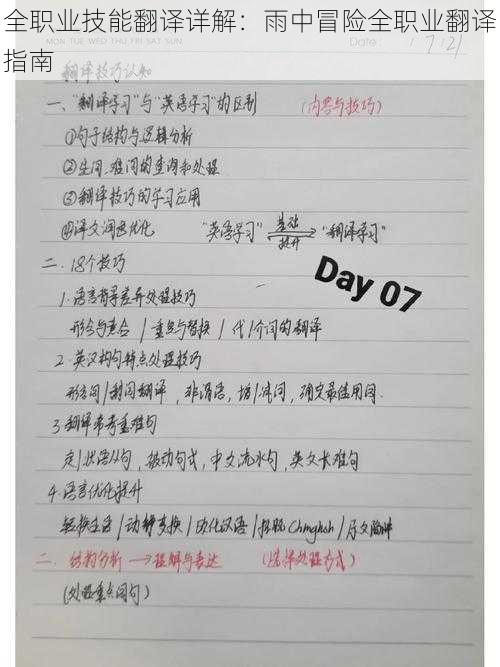 全职业技能翻译详解：雨中冒险全职业翻译
指南
MON TUE WED THU FRI SAT SUN
Date 7/21
翻译技巧认知
一、"翻译学习"与"英语学习"的区别 (内容与技巧)
①句子结构与逻辑分析
②生词、难词的查询和处理
③翻译技巧的学习应用
④译文润色优化 "英语学习" 基础 提升 "翻译学习"
二、18个技巧
Day 07
1.语言背景差异处理技巧
形合与意合 / 重复与替换 / 代/介词的翻译
2.英汉构句特点处理技巧
形容词/副词翻译，非谓语，增/减词，确定最佳用词.
3翻译常考重难句
定/状语从句，被动句式，中文流水句，英文长难句
4.语言优化提升
动静变换 / 欧化汉语 / 摆脱Chinglish /
二、结构分析→理解与表达 (选择处理方式)
(处理重点词句)